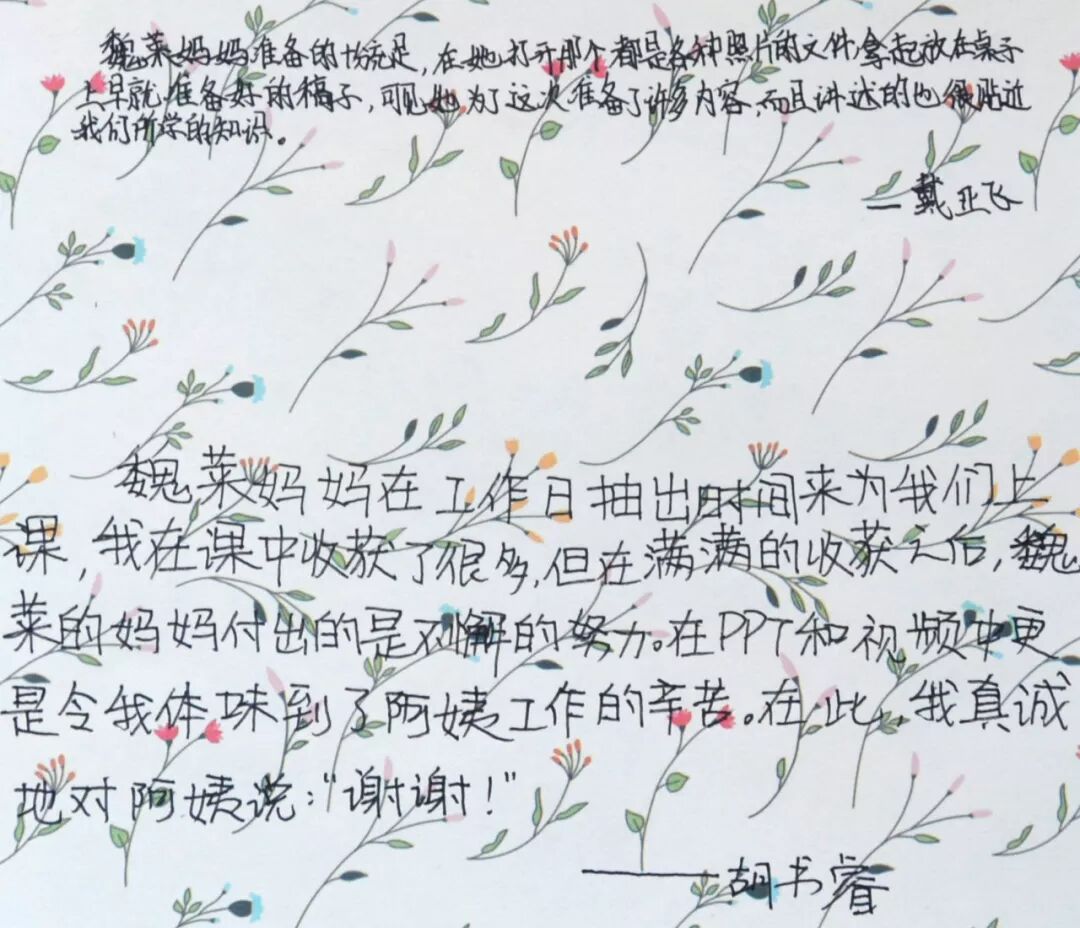 魏莱妈妈准备的十分充足，在她打开那个都是各种照片的文件，拿起放在桌子
上早就准备好的稿子，可见她为了这次准备了许多内容，而且讲述的也很贴近
我们所学的知识。
—戴亚飞
魏莱妈妈在工作日抽出时间来为我们上
课，我在课中收获了很多，但在满满的收获之后，魏
莱的妈妈付出的是不懈的努力。在PPT和视频中更
是令我体味到了阿姨工作的辛苦。在此，我真诚
地对阿姨说：“谢谢！”
——胡书睿